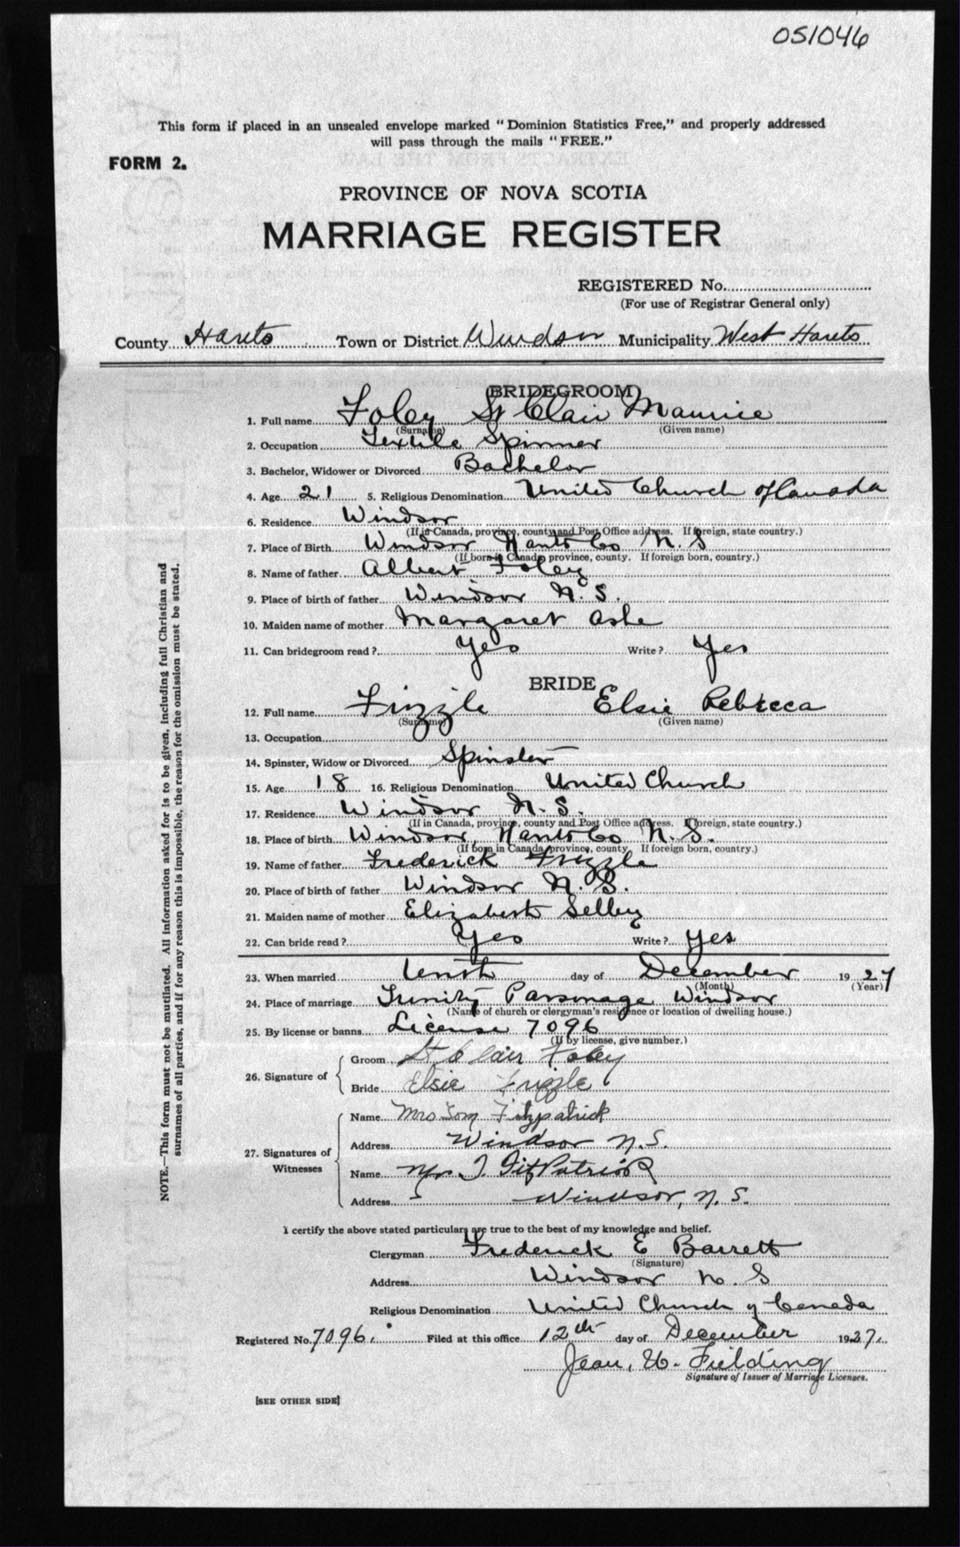 051046
This form if placed in an unsealed envelope marked "Dominion Statistics Free," and properly addressed
will pass through the mails "FREE."
FORM 2.
PROVINCE OF NOVA SCOTIA
MARRIAGE REGISTER
REGISTERED No.
(For use of Registrar General only)
County Hants Town or District Windsor Municipality West Hants
BRIDEGROOM
1. Full name Foley St Clair Maurice
(Surname) (Given name)
2. Occupation Textile Spinner
3. Bachelor, Widower or Divorced Bachelor
4. Age 21 5. Religious Denomination United Church of Canada
6. Residence Windsor
(If in Canada, province, county and Post Office address. If foreign, state country.)
7. Place of Birth Windsor Hants Co N.S
(If born in Canada, province, county. If foreign born, country.)
8. Name of father Albert Foley
9. Place of birth of father Windsor N.S.
10. Maiden name of mother Margaret Ashe
11. Can bridegroom read? Yes Write? Yes
BRIDE
12. Full name Frizzle Elsie Rebecca
(Surname) (Given name)
13. Occupation
14. Spinster, Widow or Divorced Spinster
15. Age 18 16. Religious Denomination United Church
17. Residence Windsor N.S.
(If in Canada, province, county and Post Office address. If foreign, state country.)
18. Place of birth Windsor, Hants Co N.S.
(If born in Canada, province, county. If foreign born, country.)
19. Name of father Frederick Frizzle
20. Place of birth of father Windsor N.S.
21. Maiden name of mother Elizabeth Selley
22. Can bride read? Yes Write? Yes
23. When married tenth day of December 19
(Month) (Year)
24. Place of marriage Trinity Parsonage Windsor
(Name of church or clergyman's residence or location of dwelling house.)
25. By license or banns License 7096
(If by license, give number.)
26. Signature of
Groom St Clair Foley
Bride Elsie Frizzle
27. Signatures of Witnesses
Name Mrs Tom Fitzpatrick
Address Windsor N.S.
Name Mr T. FitzPatrick
Address Windsor, N.S.
I certify the above stated particulars are true to the best of my knowledge and belief.
Clergyman Frederick E Barrett
(Signature)
Address Windsor N.S
Religious Denomination United Church of Canada
Registered No. 7096. Filed at this office 12th day of December 1937.
Jean, W. Fielding
Signature of Issuer of Marriage Licenses.
[SEE OTHER SIDE]
NOTE.—This form must not be mutilated. All information asked for is to be given, including full Christian and
surnames of all parties, and if for any reason this is impossible, the reason for the omission must be stated.